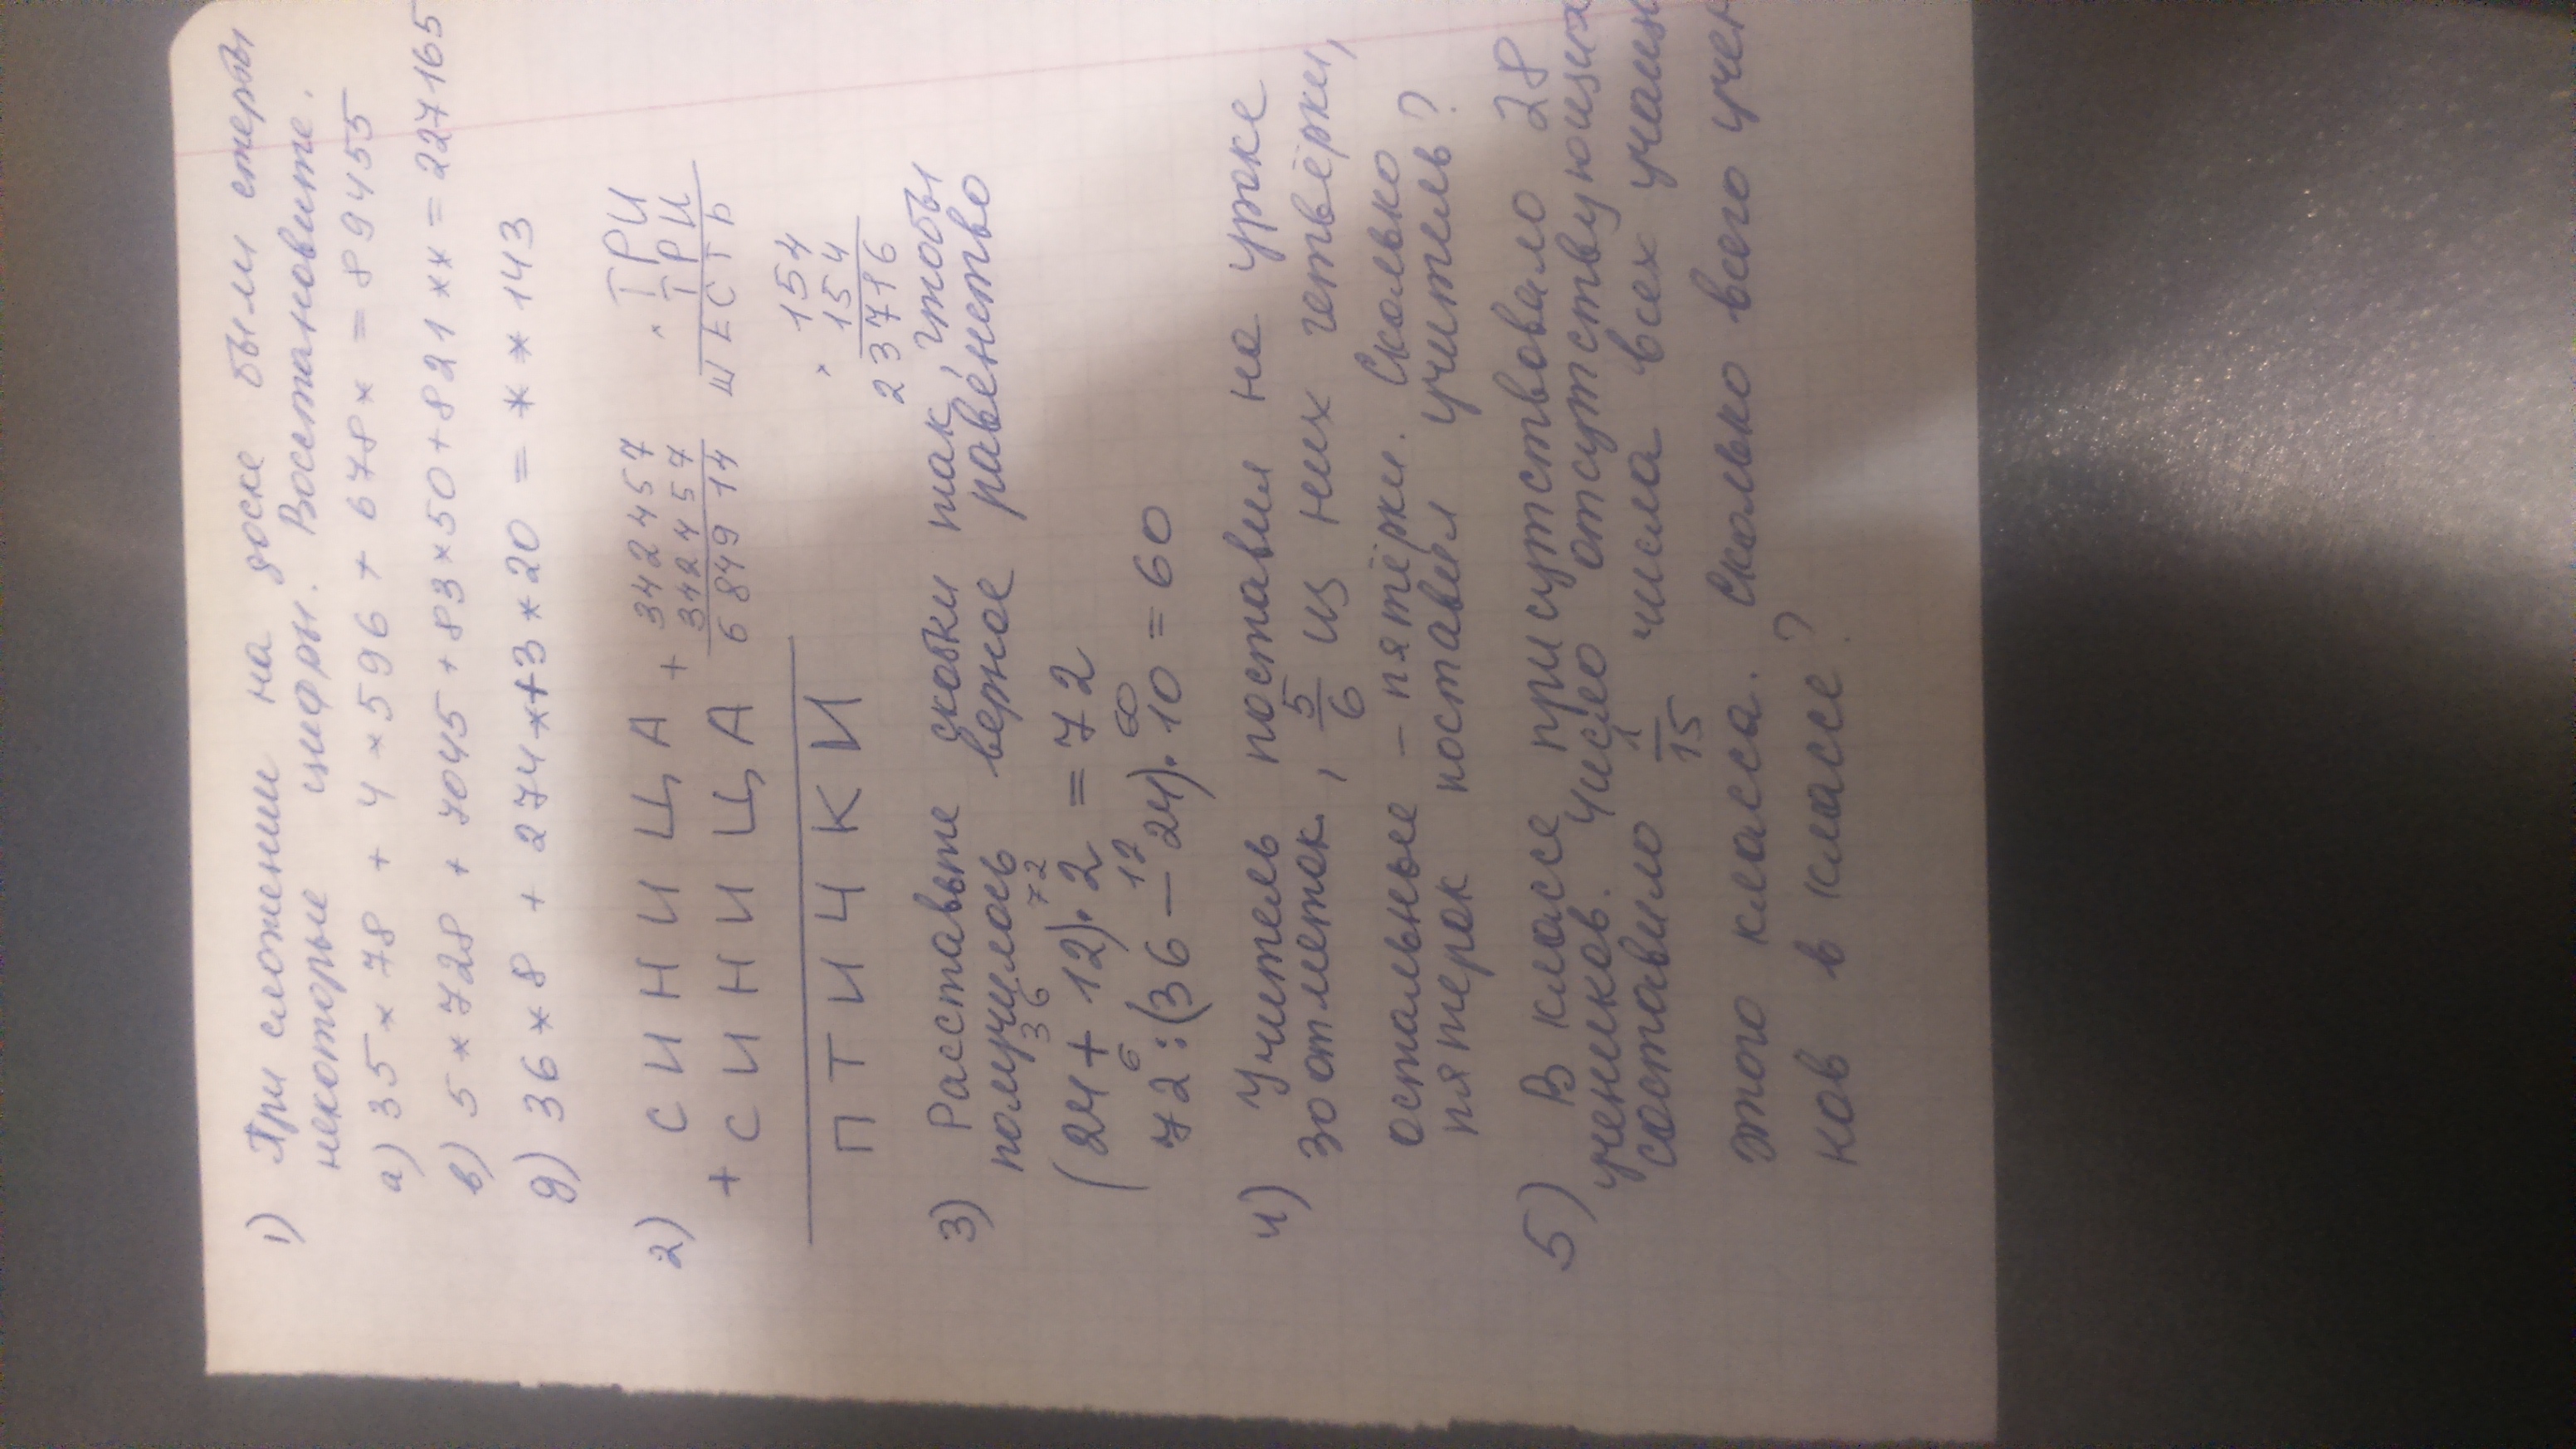 1) При сложении на доске были стерты
некоторые цифры. Восстановите.
а) 35*78 + 4*596 + 678* = 89455
в) 5*728 + 7045 + 83*50 + 821** = 227165
д) 36*8 + 274** + 3*20 = ***143
2) СИНИЦА + 342457 ТРИ
+ СИНИЦА 342457 · ТРИ
ПТИЧКИ 684914 ШЕСТЬ
· 154
154
23716
3) Расставьте скобки так, чтобы
получилось верное равенство
36 72
(24 + 12) · 2 = 72
6 12 60
72 : (36 – 24) · 10 = 60
4) Учитель поставил на уроке
30 отметок, 5/6 из них четвёрки,
остальные – пятёрки. Сколько
пятерок поставил учитель?
5) В классе присутствовало 28
учеников. Число отсутствующих
составило 1/15 числа всех учащ
этого класса. Сколько всего учен
ков в классе?